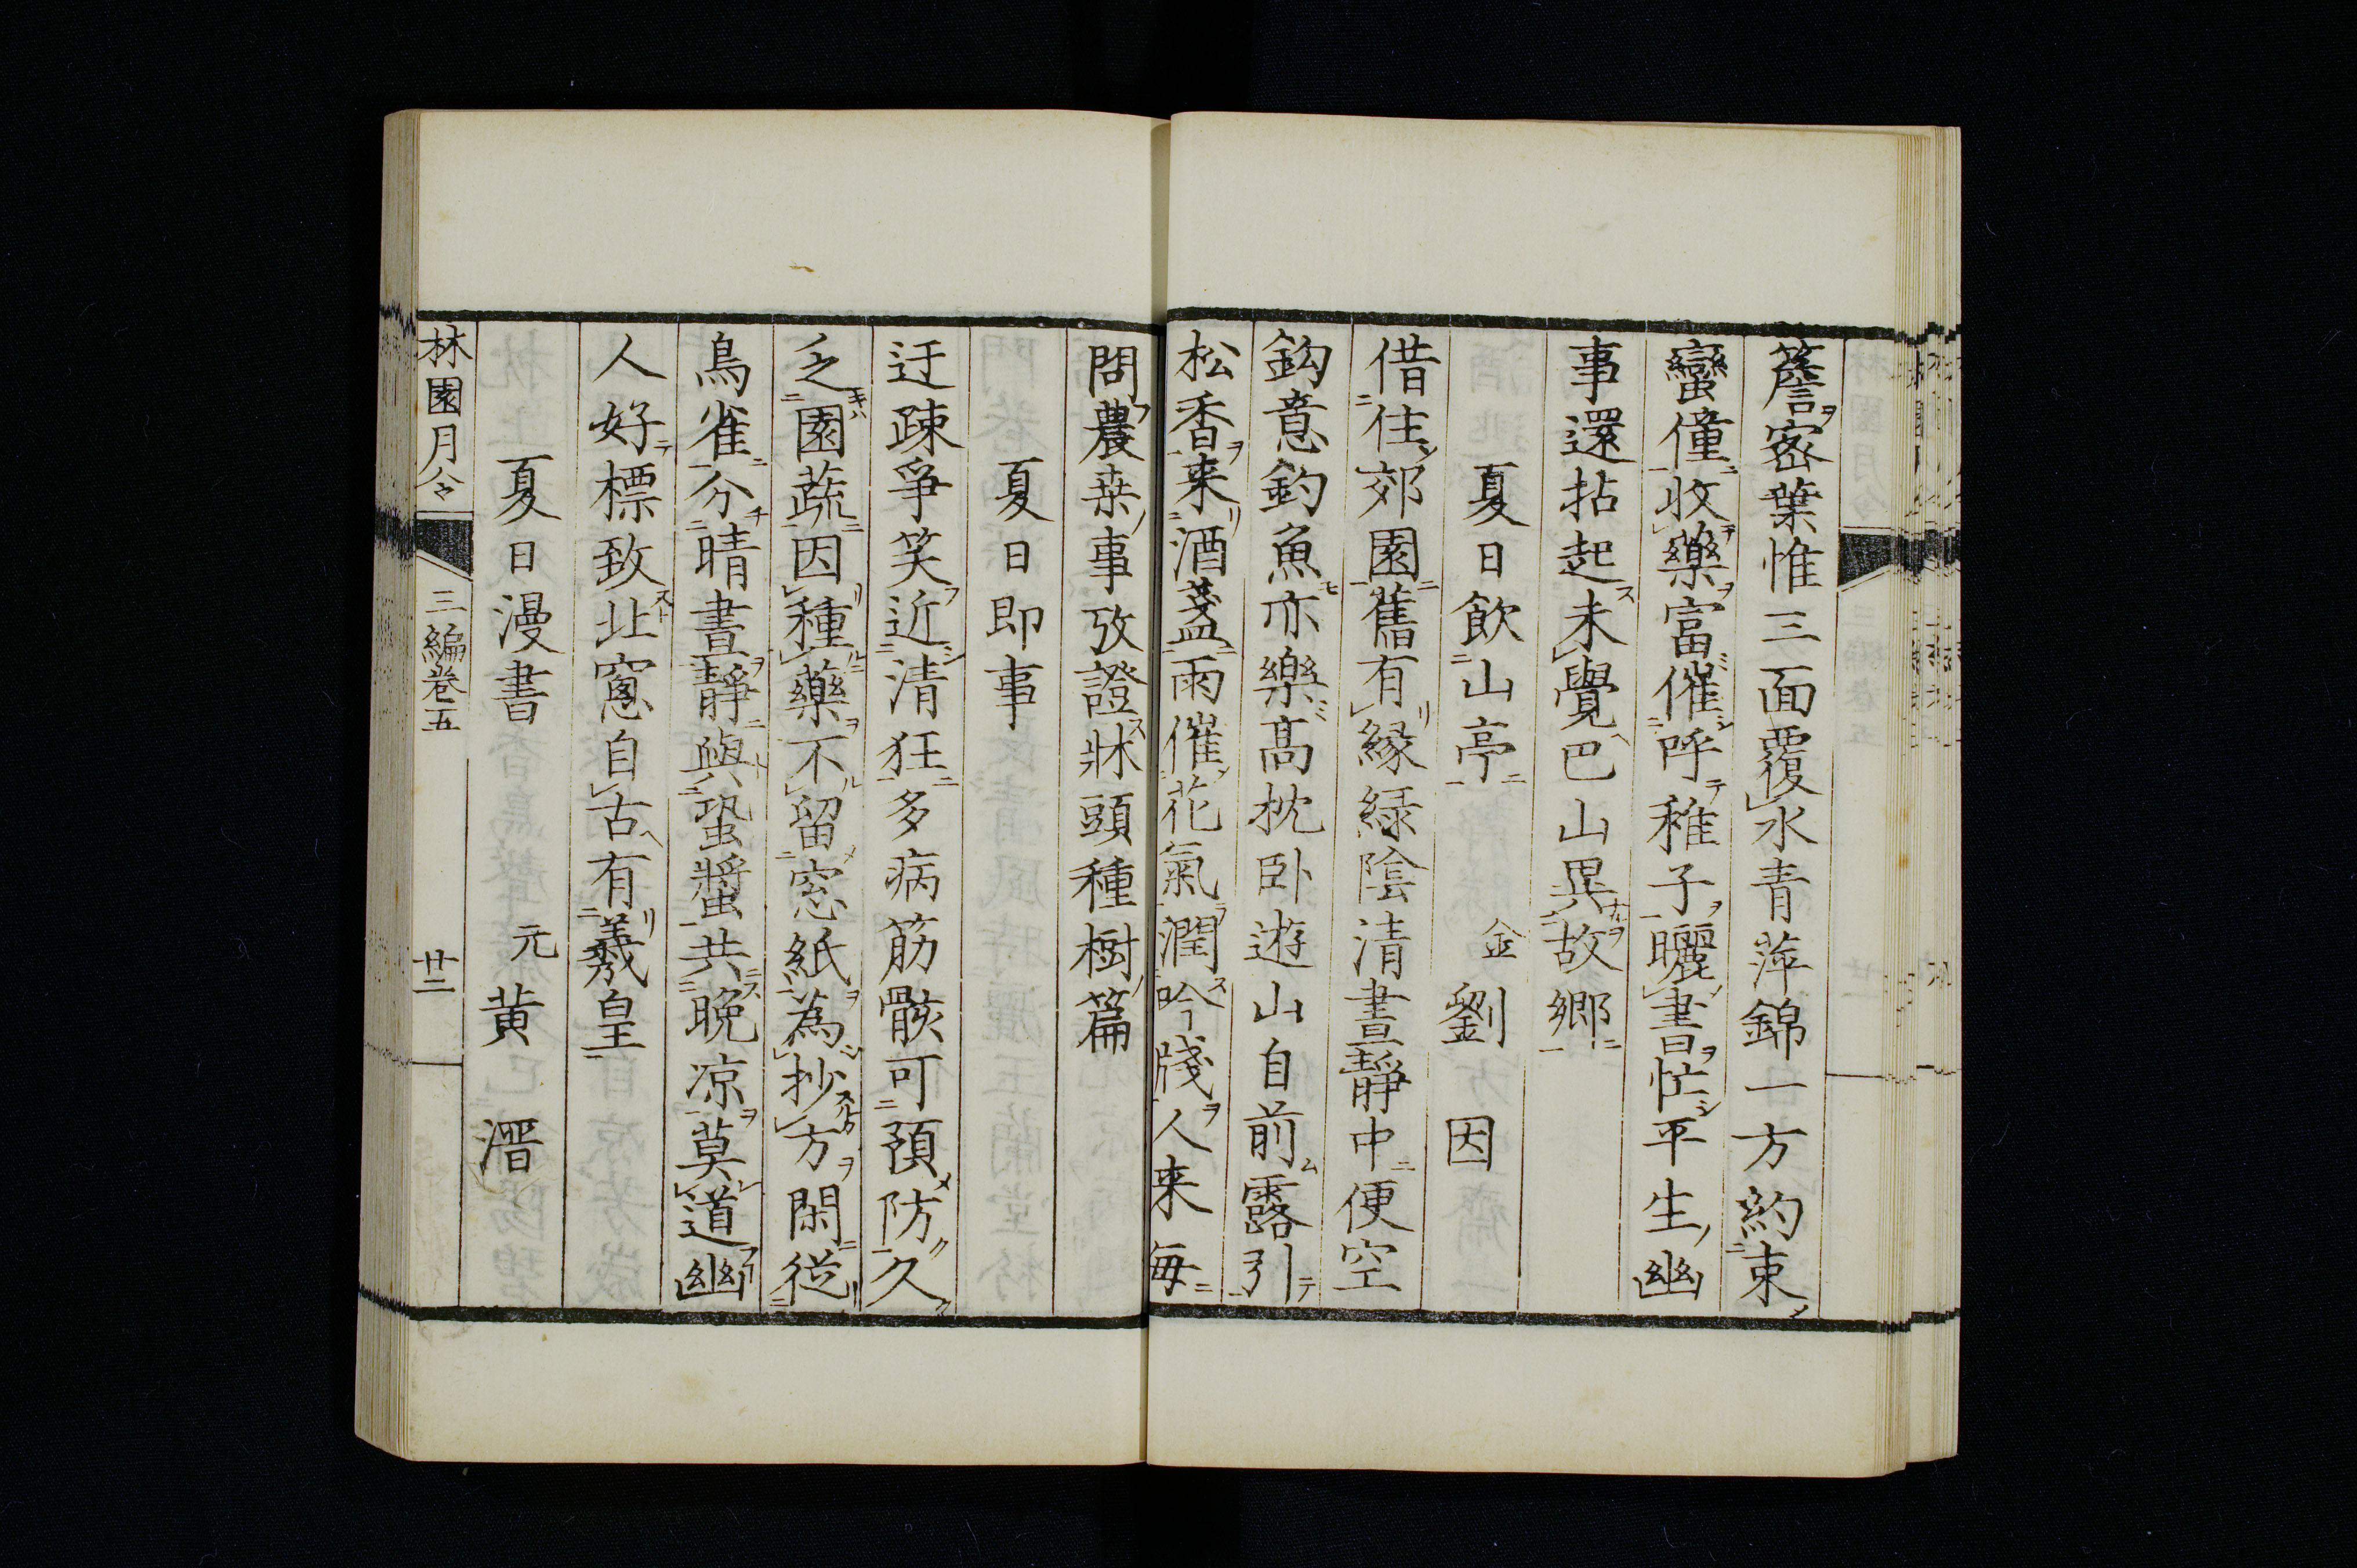 簷密葉惟三面覆水青萍錦一方約束
蠻僮收藥富催呼稚子曬書忙平生幽
事還拈起未覺巴山異故鄉
夏日飲山亭　金　劉　因
借住郊園舊有緣綠陰清晝靜中便空
鈎意釣魚亦樂高枕卧遊山自前露引
松香来酒盞雨催花氣潤吟牋人来毎
問農桒事攷證牀頭種樹篇
夏日即事
迂疎爭笑近清狂多病筋骸可預防久
乏園蔬因種藥不留窓紙為抄方閑從
鳥雀分晴晝靜與蛩螿共晚凉莫道幽
人好標致北窻自古有羲皇
夏日漫書　元　黃　溍
林園月令　三編卷五　廿二